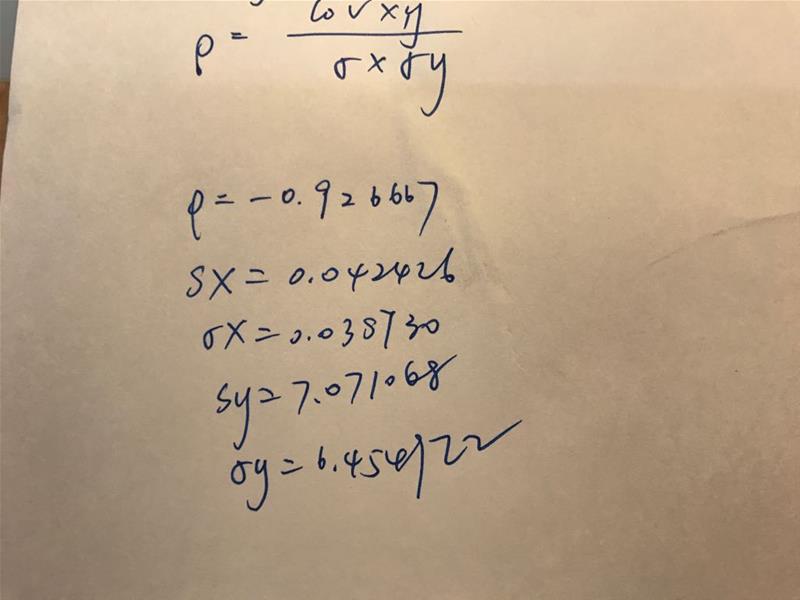 ρ = cov xy / σx σy
ρ = -0.926667
sx = 0.042426
σx = 0.038730
sy = 7.071068
σy = 6.454972